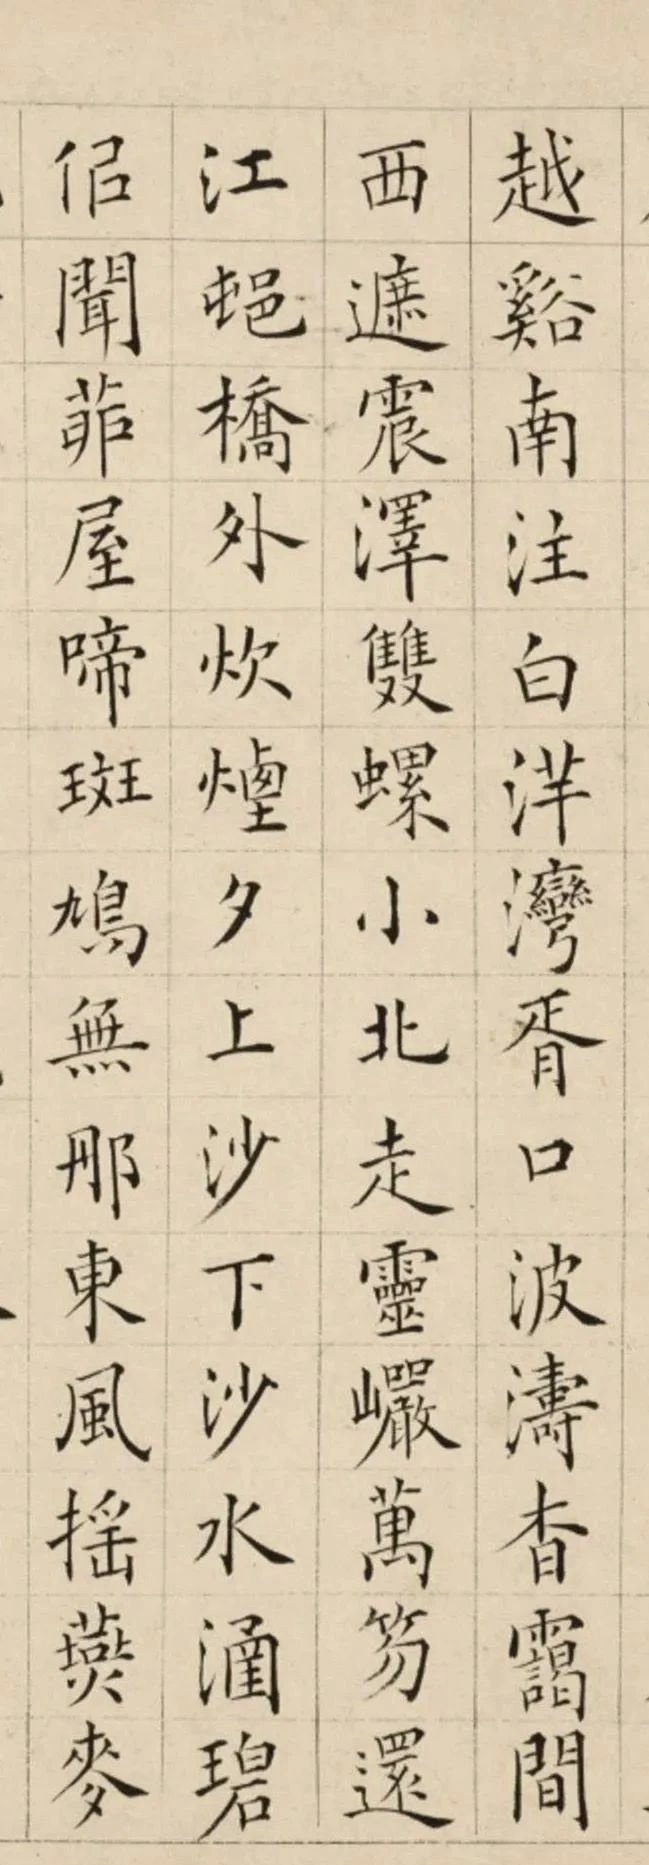 越谿南注白洋灣胥口波濤杳靄間
西遮震澤雙螺小北走靈巖萬笏還
江郌橋外炊煙夕上沙下沙水涵碧
但聞茆屋啼斑鳩無那東風揺燕麥